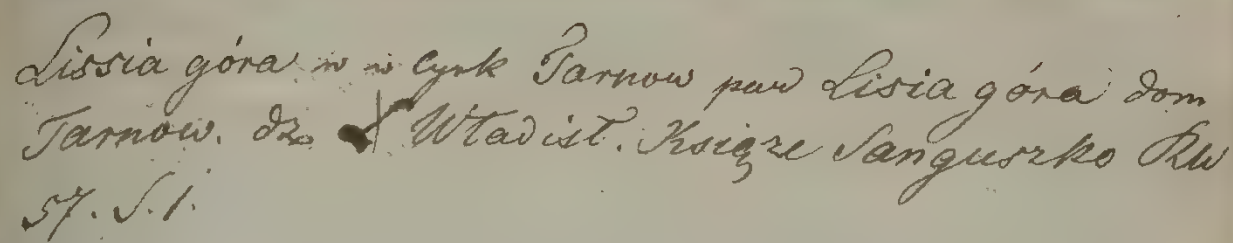 Lissia góra w w Cyrk Tarnow par Lisia góra dom
Tarnow. dz. Władisł. Książe Sanguszko RW
57. S. 1.